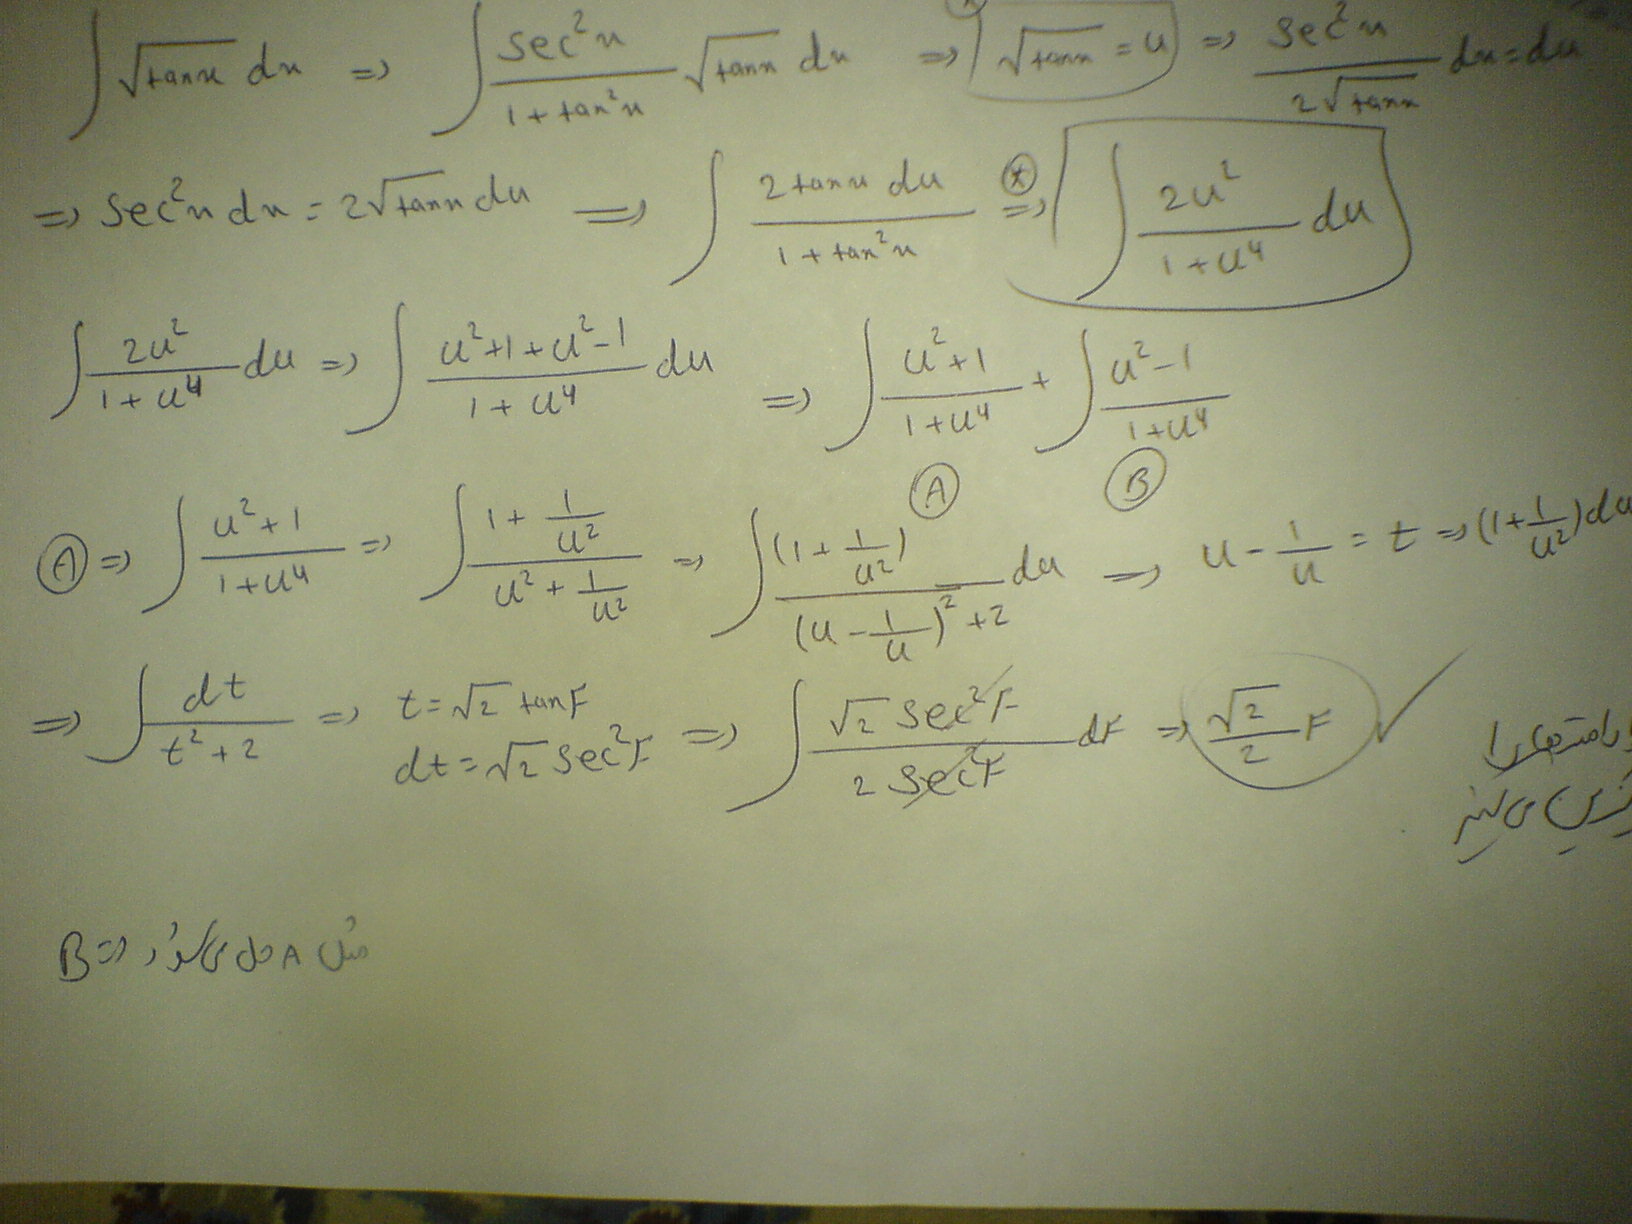 ∫ √tanx dx ⇒ ∫ sec²x/(1+tan²x) √tanx dx ⇒ √tanx = u ⇒ sec²x/(2√tanx) dx = du
⇒ sec²x dx = 2√tanx du ⇒ ∫ 2tanx du/(1+tan²x) (*)⇒ ∫ 2u²/(1+u⁴) du
∫ 2u²/(1+u⁴) du ⇒ ∫ (u²+1+u²-1)/(1+u⁴) du ⇒ ∫ (u²+1)/(1+u⁴) + ∫ (u²-1)/(1+u⁴)
A B
A ⇒ ∫ (u²+1)/(1+u⁴) ⇒ ∫ (1+1/u²)/(u²+1/u²) ⇒ ∫ (1+1/u²)/((u-1/u)²+2) du ⇒ u - 1/u = t ⇒ (1+1/u²)du
⇒ ∫ dt/(t²+2) ⇒ t=√2 tanF dt=√2 sec²F ⇒ ∫ √2 sec²F/(2 sec²F) dF ⇒ √2/2 F ✓
B ⇒ مثل A حل می شود